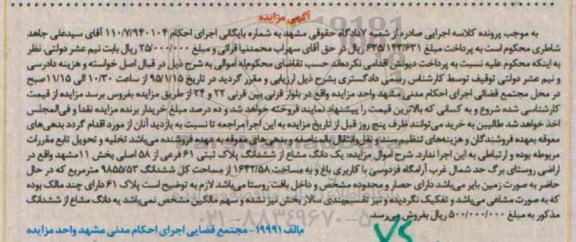 آگهی مزایده
به موجب پرونده کلاسه اجرایی صادره از شعبه ۷ دادگاه حقوقی مشهد به شماره بایگانی اجرای احکام ۱۱۰/۷/۹۴۰۱۰۴ آقای سیدعلی جاهد
شاطری محکوم است به پرداخت مبلغ ۶۳۵/۱۲۳/۶۳۱ ریال در حق آقای سهراب محمدنیا قرائی و مبلغ ۲۵/۰۰۰/۰۰۰ ریال بابت نیم عشر دولتی. نظر
به اینکه محکوم علیه نسبت به پرداخت دیونش اقدامی نکرده‌اند حسب تقاضای محکوم‌له اموالی به شرح ذیل در قبال اصل خواسته و هزینه دادرسی
و نیم عشر دولتی توقیف توسط کارشناس رسمی دادگستری بشرح ذیل ارزیابی و مقرر گردید در تاریخ ۹۵/۱/۱۵ از ساعت ۱۰/۳۰ الی ۱۱/۱۵ صبح
در محل مجتمع قضائی اجرای احکام مدنی مشهد واحد مزایده واقع در بلوار قرنی بین قرنی ۲۲ و ۲۴ از طریق مزایده بفروش برسد مزایده از قیمت
کارشناسی شده شروع و به کسانی که بالاترین قیمت را پیشنهاد نمایند فروخته خواهد شد و ده درصد مبلغ خریدار برنده مزایده نقدا و فی‌المجلس
اخذ خواهد شد طالبین به خرید می‌توانند ظرف پنج روز قبل از تاریخ مزایده به این اجرا مراجعه تا نسبت به بازدید آنان از مورد اقدام گردد بدهی‌های
معوقه بعهده فروشندگان و هزینه‌های تنظیم سند و نقل وانتقال بالمناصفه و بدهی‌های معوقه به عهده فروشنده می‌باشد تخلیه و تحویل تابع مقررات
مربوطه بوده و ارتباطی به این اجرا ندارد. شرح اموال مزایده: یک دانگ مشاع از ششدانگ پلاک ثبتی ۶۱ فرعی از ۵۸ اصلی بخش ۱۱ مشهد واقع در
اراضی روستای برگ حد شمال غرب آرامگاه فردوسی با کاربری باغ و به مساحت ۱۶۴۲/۵۸ از مساحت کل ششدانگ ۹۸۵۵/۵۳ مترمربع که در حال
حاضر به صورت زمین بایر می‌باشد دارای حصار و محدوده مشخص و داخل بافت روستا می‌باشد لازم به توضیح است پلاک ۶۱ دارای چند مالک بوده
که به صورت مشاعی می‌باشد و تفکیک نگردیده و نیز تقسیم‌بندی سالار بخش نیز نشده و سهم مالکین مشخص نمی‌باشد یه دانگ مشاع از ششدانگ
مذکور به مبلغ ۵۰۰/۰۰۰/۰۰۰ ریال بفروش می‌رسد.
۰۲۱-۸۸۳۴۹۶۷۰-۵
م‌الف ۱۹۹۹۱ - مجتمع قضایی اجرای احکام مدنی مشهد واحد مزایده